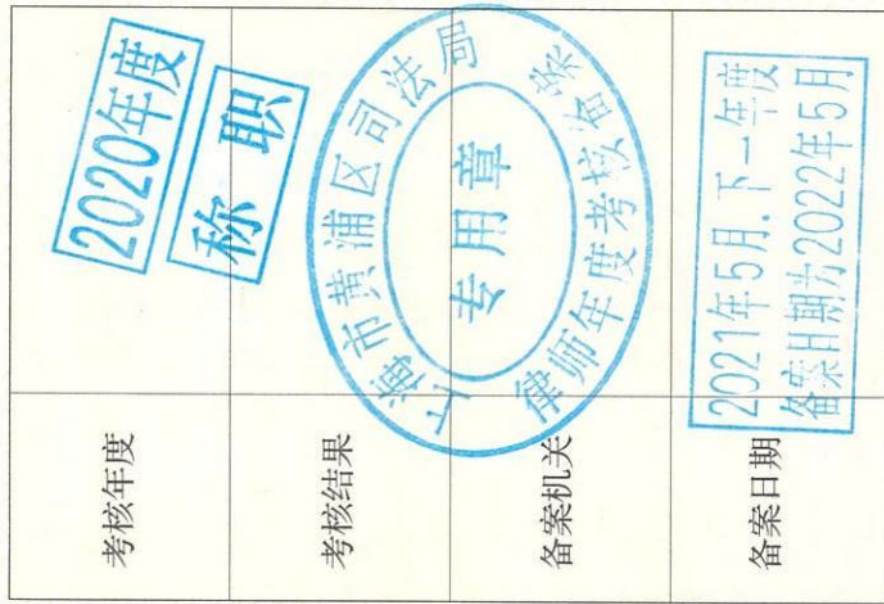 考核年度
2020年度
考核结果
称职
备案机关
上海市黄浦区司法局
专用章
律师年度考核备案
备案日期
2021年5月.下一年度
备案日期为2022年5月